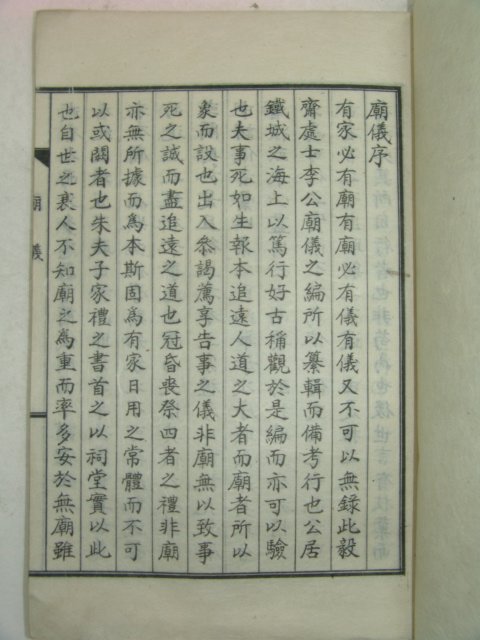 廟儀序
有家必有廟有廟必有儀有儀又不可以無錄此毅
齋處士李公廟儀之編所以纂輯而備考行也公居
鐵城之海上以篤行好古稱觀於是編而亦可以驗
也夫事死如生報本追遠人道之大者而廟者所以
象而設也出入叅謁薦享告事之儀非廟無以致事
死之誠而盡追遠之道也冠昏喪祭四者之禮非廟
亦無所據而爲本斯固爲有家日用之常體而不可
以或闕者也朱夫子家禮之書首之以祠堂實以此
也自世之衰人不知廟之爲重而率多安於無廟雖
廟儀